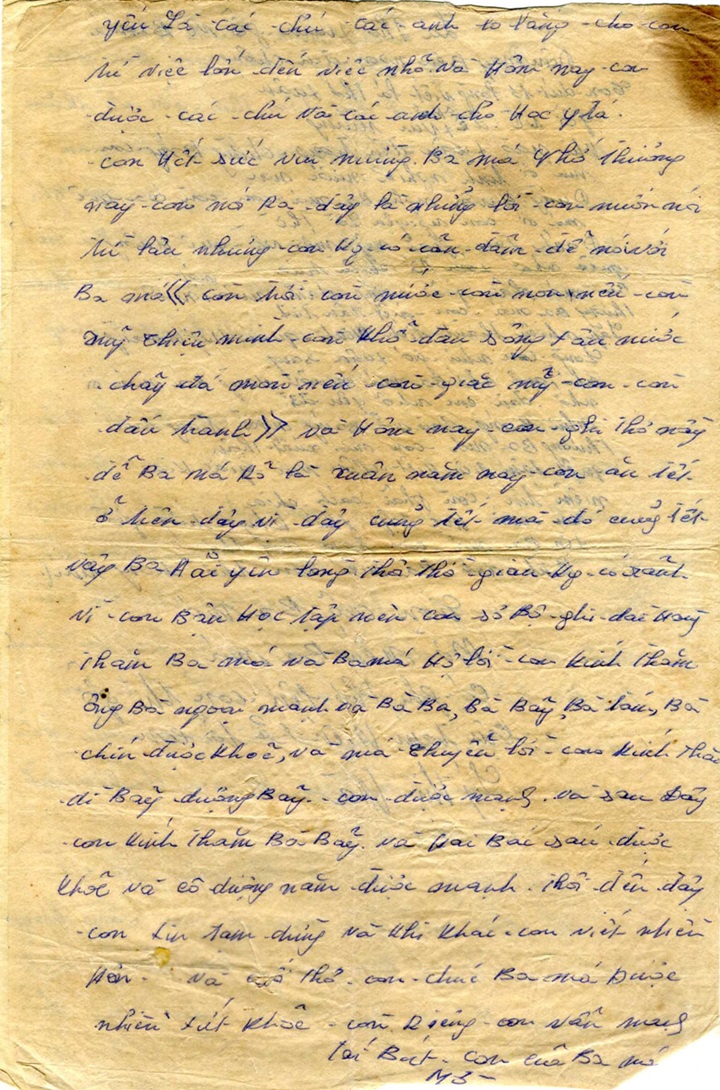 yếu Là các chú các anh lo lắng cho con
từ việc lớn đến việc nhỏ và Hôm nay con
được các chú và các anh cho Học y tá.
con Hết sức vui mừng. Ba má nhớ thương
nay con nói Ra đây là những lời con muốn nói
từ lâu nhưng con Kg có can đảm để nói với
Ba má << còn trời còn nước còn non nếu còn
mỹ thiệu minh con khổ dân sông tàn nước
chãy đá mòn nếu còn giặc mỹ con còn
đấu tranh >> và Hôm nay con ghi thơ này
để Ba má Rỏ là xuân năm nay con ăn tết
ở trên đây vì đây cũng tết mà đó cũng tết
vậy Ba Hãi yên lòng thơ thời gian Kg có rãnh
vì con Bận Học tập nên con sơ Bộ ghi đôi Hàng
thăm Ba má và Ba má Hộ lời con Kính Thăm
ông Ba ngoại mạnh và Bà Ba, Bà Bãy, Bà tám, Bà
chín được khoẽ, và má chuyễn lời con Kính thăm
dì Bãy dượng Bãy con được mạnh. và sau Đây
con Kính Thăm Bà Bãy và Hai Bác sáu được
Khoẽ và cô dượng năm được mạnh. Thôi đến đây
con xin tạm dừng và Khi Khác con viết nhiều
Hơn. và cuối thơ con chúc Ba má Được
nhiều sức Khoẽ còn Riêng con vẫn mạnh
Tái Bút con của Ba má
M3